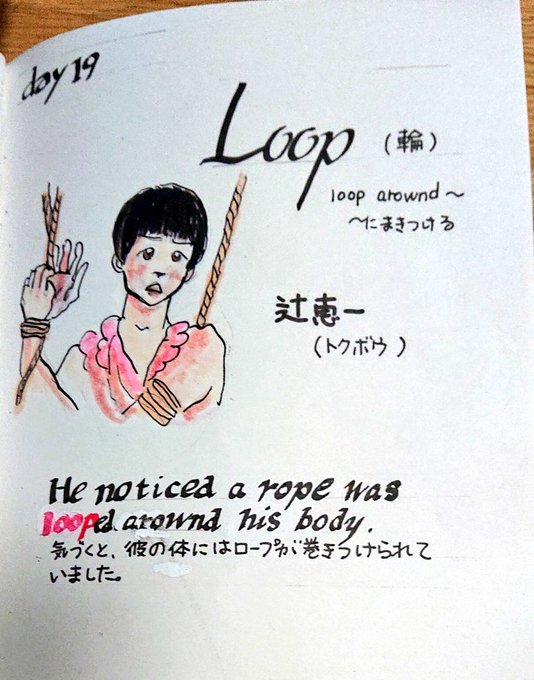 day 19
Loop (輪)
loop arownd～
～にまきつける
辻恵一
(トクボウ)
He noticed a rope was
looped arownd his body.
気づくと、彼の体にはロープが巻きつけられて
いました。